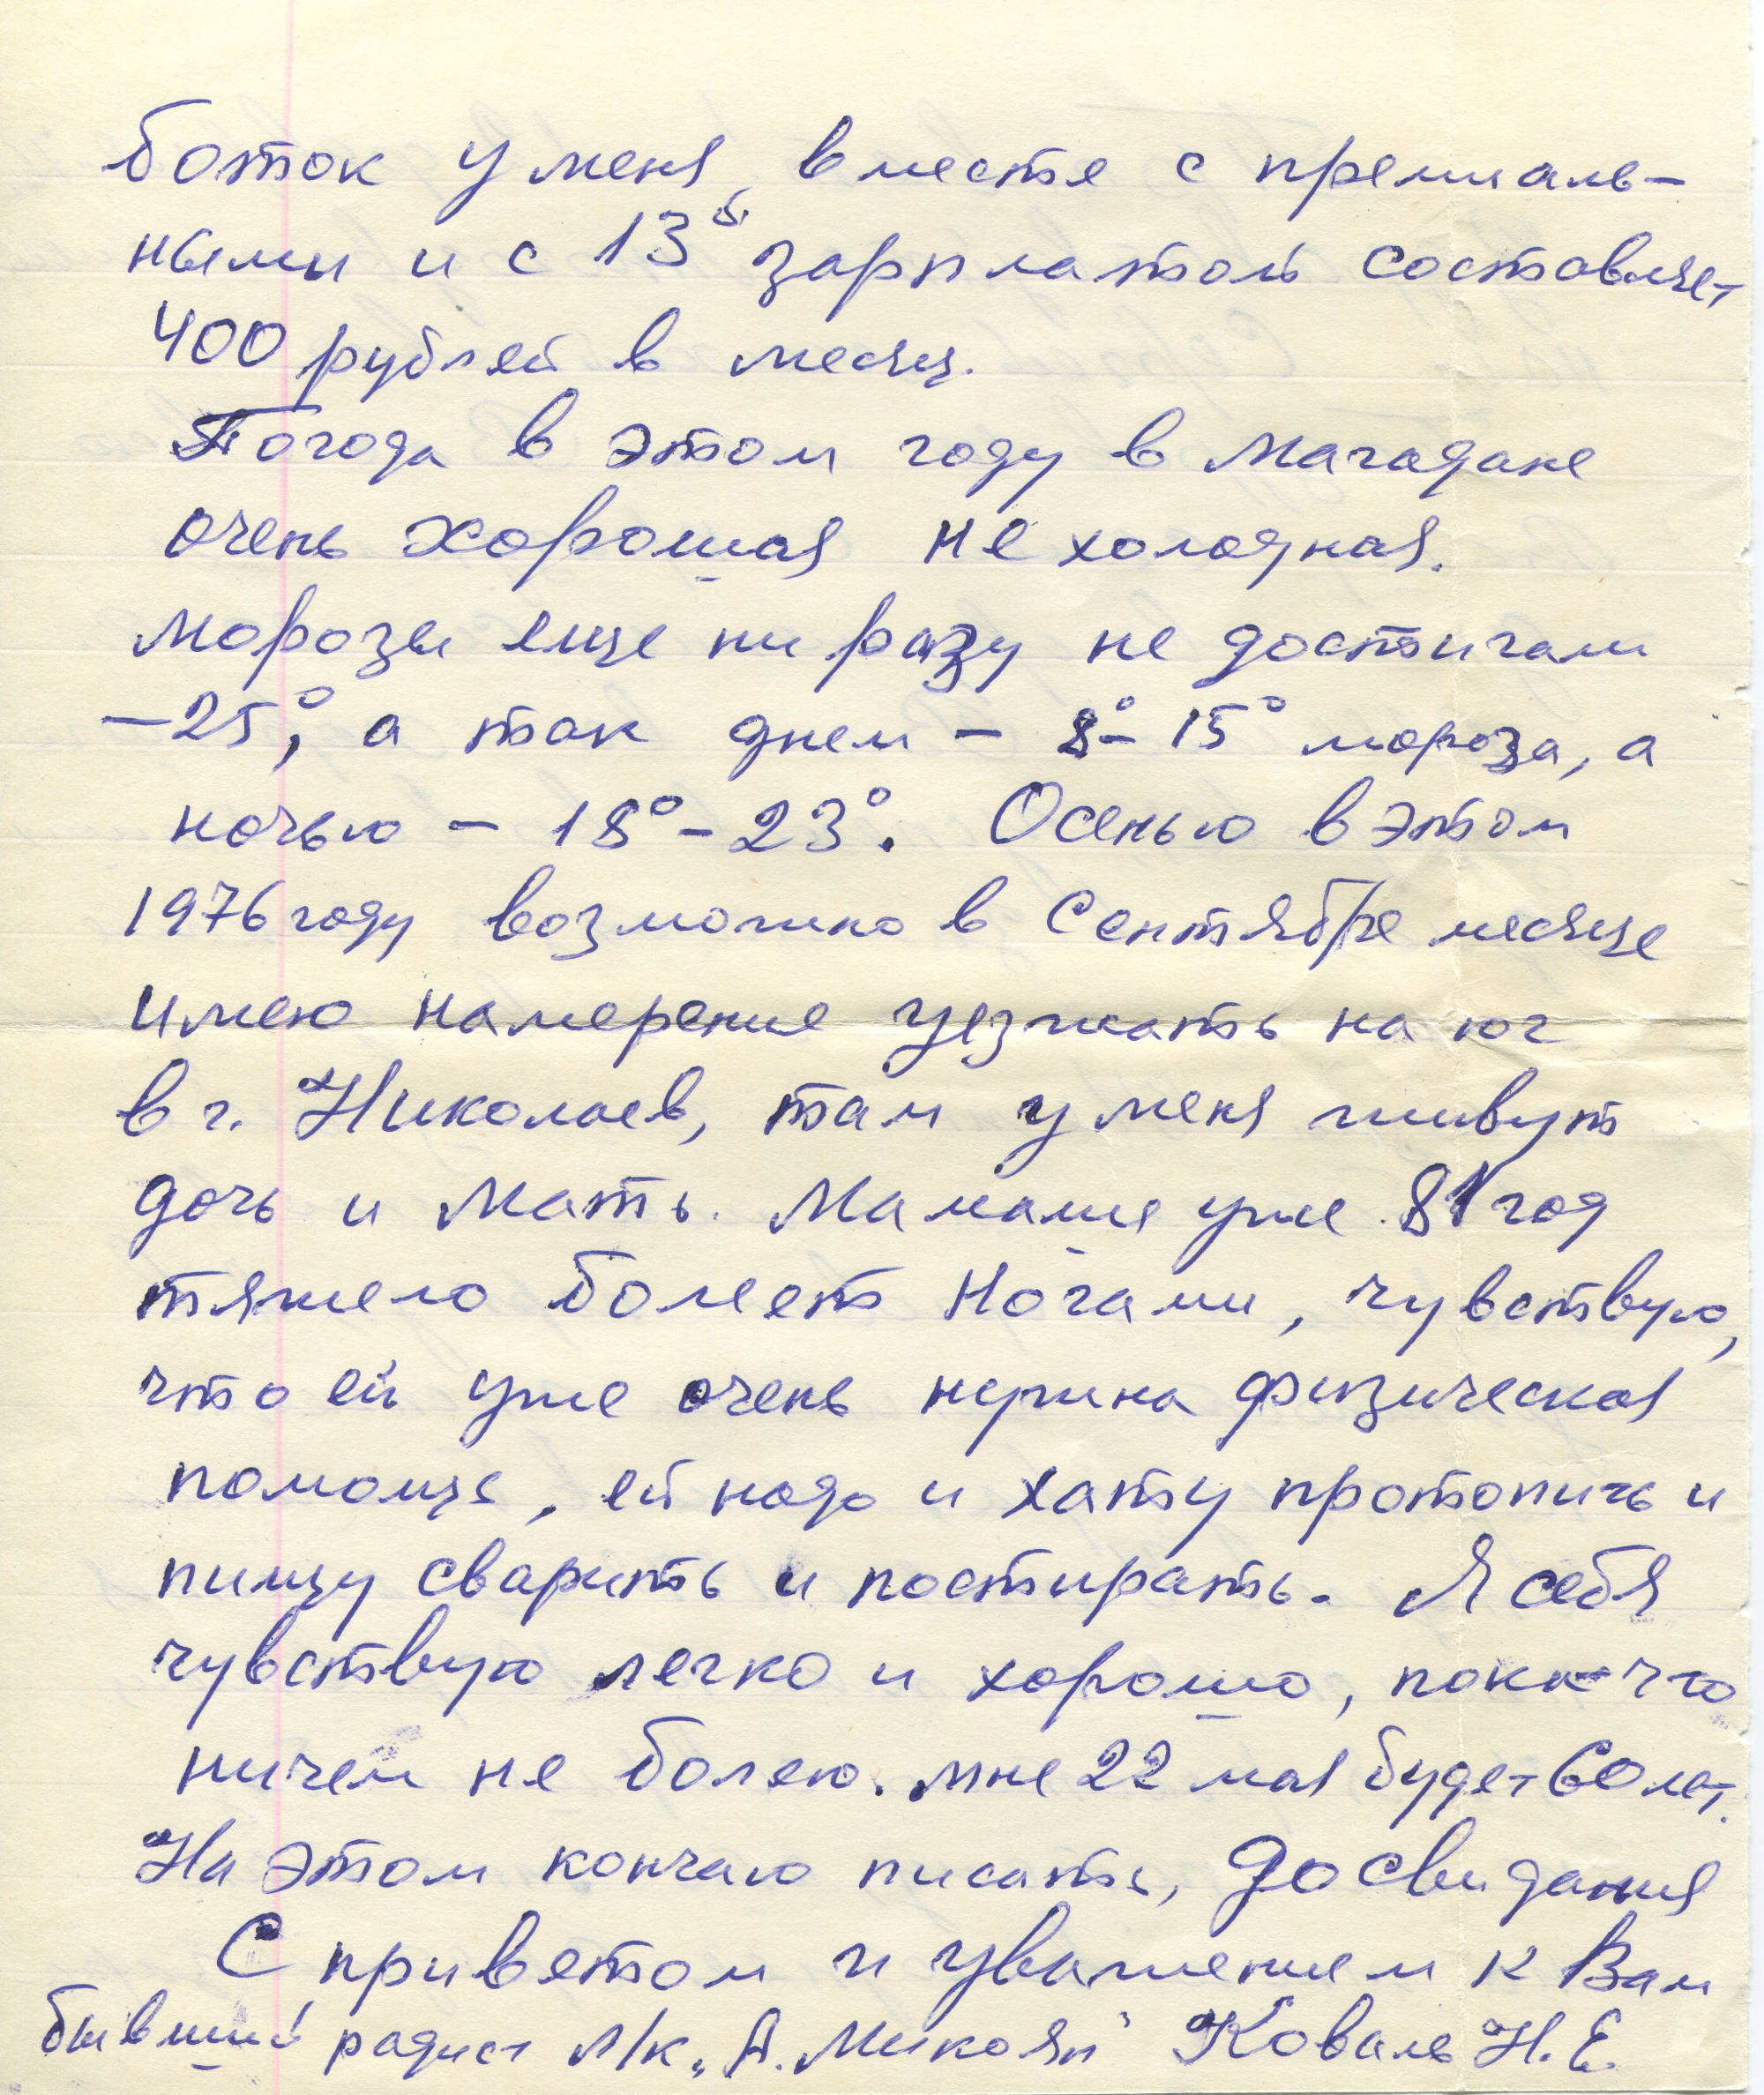 боток у меня, вместе с премиаль-
ными и с 13й зарплатой составляет
400 рублей в месяц.
Погода в этом году в Магадане
очень хорошая не холодная.
морозы еще ни разу не достигали
-25°, а так днем - 8°- 15° мороза, а
ночью - 18°- 23°. Осенью в этом
1976 году возможно в Сентябре месяце
имею намерение уезжать на юг
в г. Николаев, там у меня живут
дочь и Мать. Мамаше уже 81 год
тяжело болеет ногами, чувствую,
что ей уже очень нужна физическая
помощь, ей надо и хату протопить и
пищу сварить и постирать. Я себя
чувствую легко и хорошо, пока-что
ничем не болею. мне 22 мая будет 60 лет.
На этом кончаю писать, до свидания
С приветом и уважением к Вам
бывший радист л/к „А. Микоян" Коваль Н. Е.